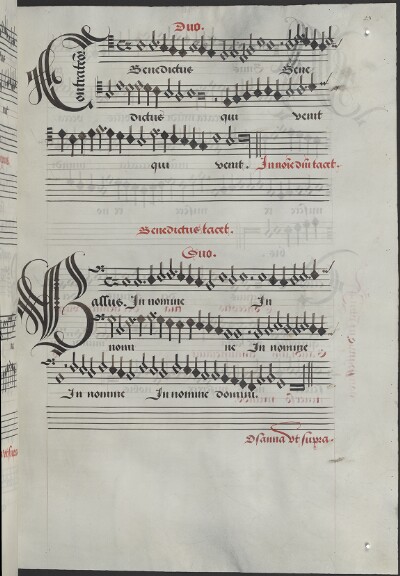 Duo.
Contratenor
Benedictus Bene
dictus qui venit
qui venit. In noīe dn̄i tacet.
Benedictus tacet.
Duo.
Bassus. In nomine In
nomi ne In nomine
In nomine In nomine domini.
Osanna vt supra.